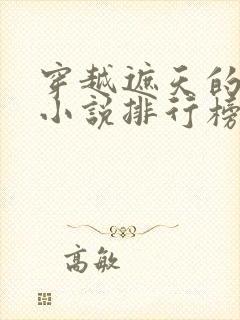 穿越遮天的
小说排行榜
高敏